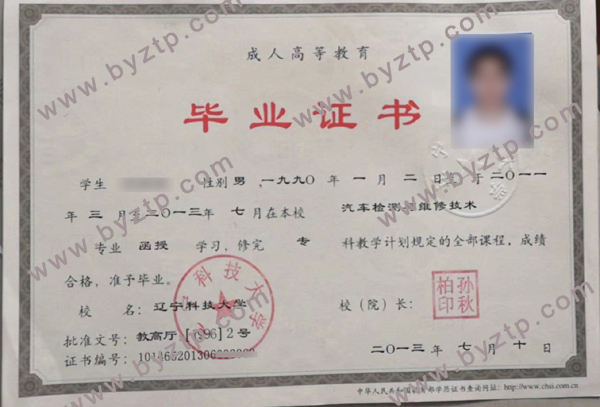 成人高等教育
毕业证书
学生 性别 男 ,一九九〇 年 一 月 二 日 于 二〇一一
年 三 月至二〇一三年 七 月在本校 汽车检测 维修技术
专业 函授 学习,修完 专 科教学计划规定的全部课程,成绩
合格,准予毕业。
科技大学
校 名:辽宁科技大学
校(院)长:
孙秋柏印
批准文号:教高厅 [1996]2号
证书编号:
二〇一三年 七 月 十 日
中华人民共和国教育部学历证书查询网址:http://www.chsi.com.cn
www.byztp.com
www.byztp.com
www.byztp.com
www.byztp.com
www.byztp.com